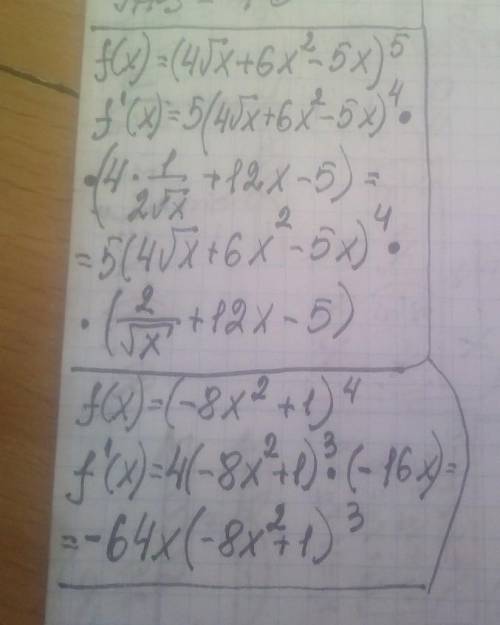 f(x)=(4√x+6x²-5x)⁵
f'(x)=5(4√x+6x²-5x)⁴•
•(4·1/(2√x)+12x-5)=
=5(4√x+6x²-5x)⁴•
·(2/√x+12x-5)
f(x)=(-8x²+1)⁴
f'(x)=4(-8x²+1)³•(-16x)=
=-64x(-8x²+1)³